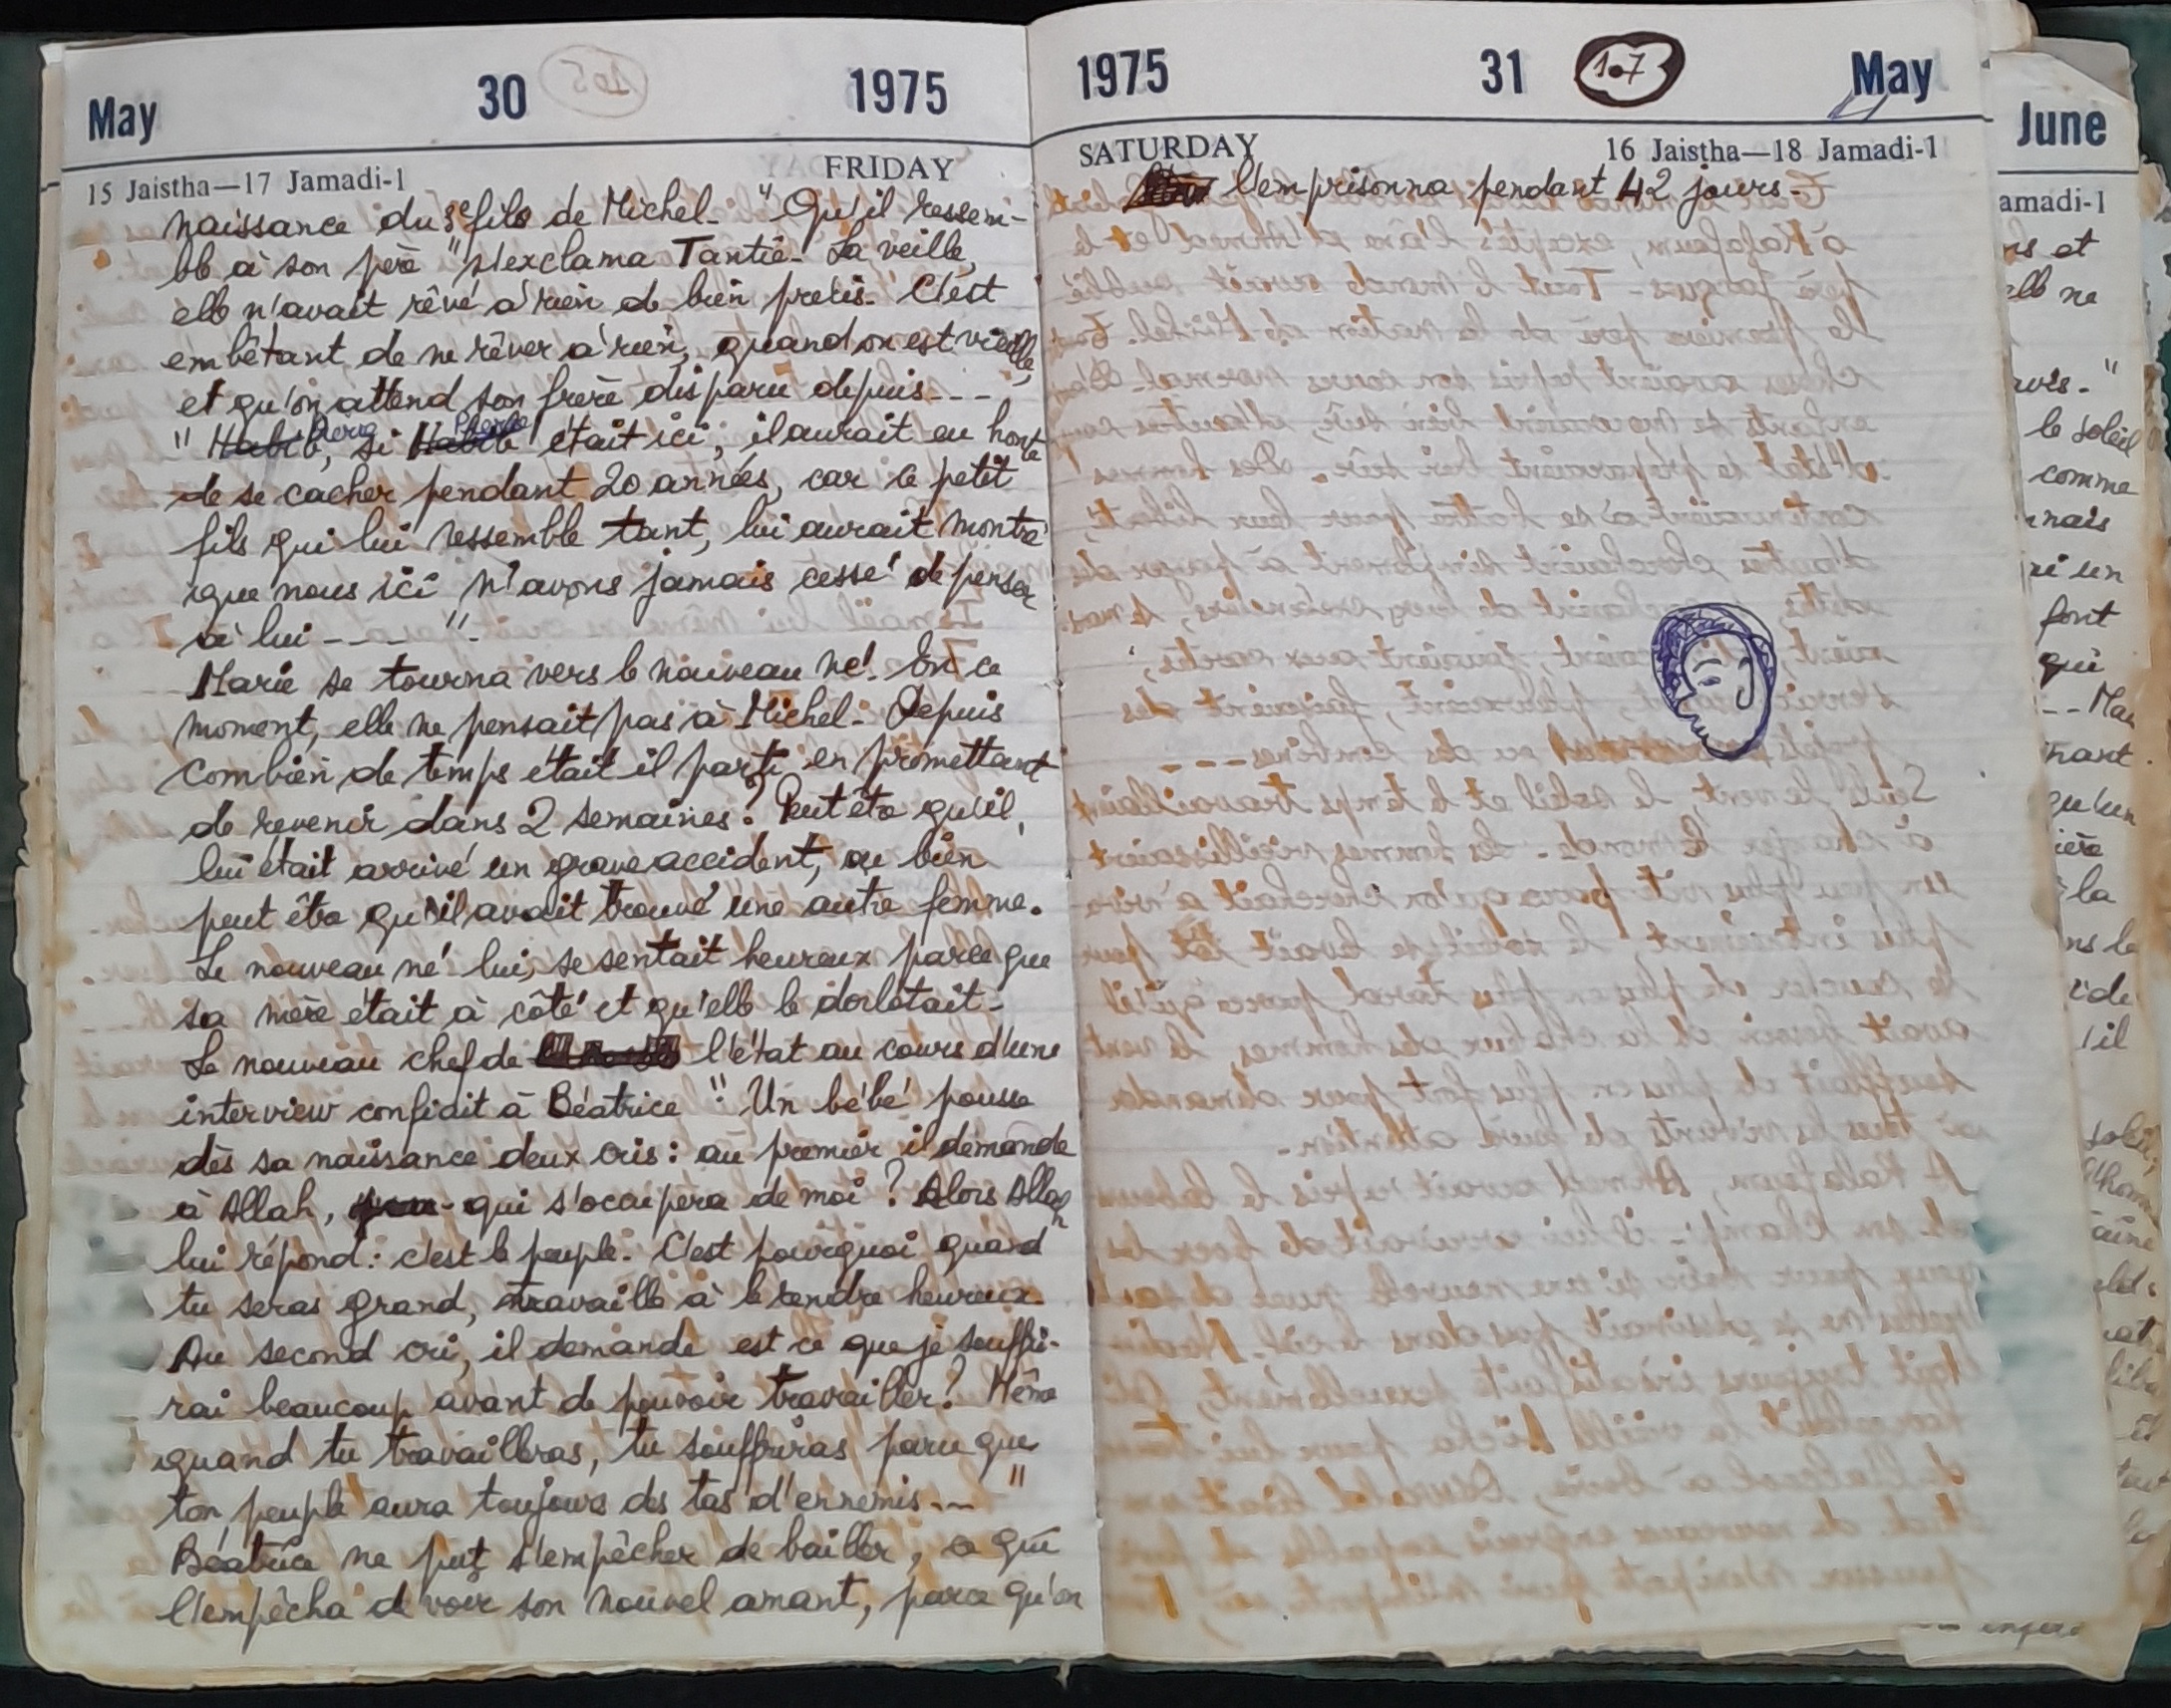 May 30 1975
15 Jaistha—17 Jamadi-1 FRIDAY
naissance du 3e fils de Michel. "Qu'il ressem-
ble à son père" s'exclama Tantie. La veille,
elle n'avait rêvé à rien de bien précis. C'est
embêtant de ne rêver à rien, quand on est vieille,
et qu'on attend son frère disparu depuis - - -
" Habib, si Habib était ici, il aurait eu honte
de se cacher pendant 20 années, car le petit
fils qui lui ressemble tant, lui aurait montré
que nous ici n'avons jamais cessé de penser
à lui - - - - ".
Marie se tourna vers le nouveau né. En ce
moment, elle ne pensait pas à Michel. Depuis
combien de temps était il parti en promettant
de revenir dans 2 semaines? Peut être qu'il
lui était arrivé un grave accident, ou bien
peut être qu'il avait trouvé une autre femme.
Le nouveau né lui, se sentait heureux parce que
sa mère était à côté et qu'elle le dorlotait.
Le nouveau chef de l'état au cours d'une
interview confiait à Béatrice " Un bébé pousse
dès sa naissance deux cris : au premier il demande
à Allah, qui s'occupera de moi ? Alors Allah
lui répond : c'est le peuple. C'est pourquoi quand
tu seras grand, travaille à le rendre heureux.
Au second cri, il demande est ce que je souffri-
rai beaucoup avant de pouvoir travailler? Même
quand tu travailleras, tu souffriras parce que
ton peuple aura toujours des tas d'ennemis - - "
Béatrice ne put s'empêcher de bailler, ce qui
l'empêcha de voir son nouvel amant, parce qu'on
1975 31 107 May
SATURDAY 16 Jaistha—18 Jamadi-1
l'emprisonna pendant 42 jours.
June
amadi-1
et
elle ne
le soleil
comme
un
font
qui
nant
qu'un
la
il